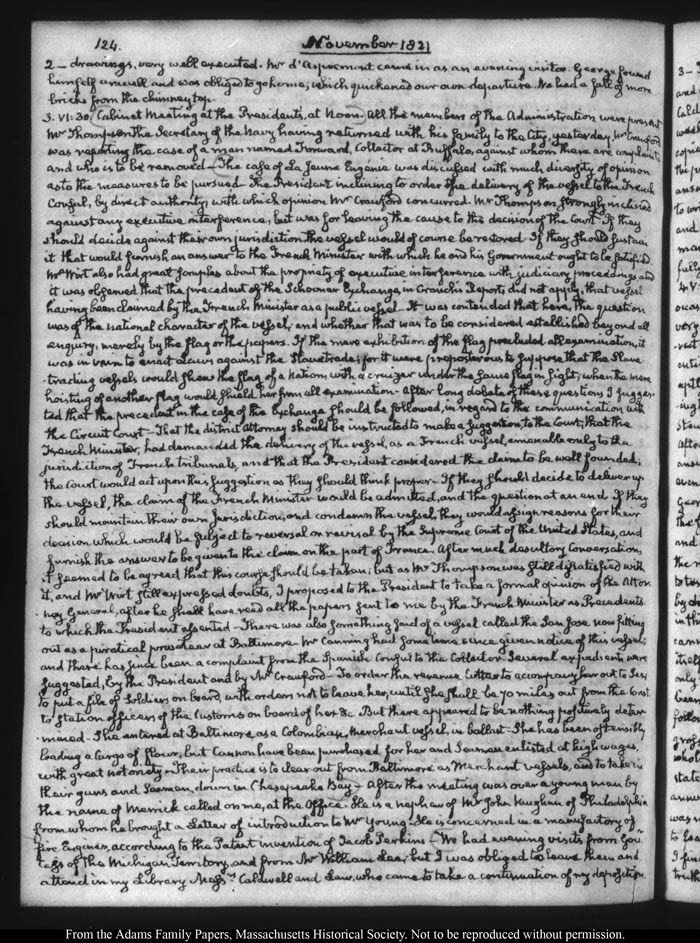 124.
November 1821
2 – drawings, very well executed. Mr d'Aspremont came in as an evening visitor. George found
himself unwell and was obliged to go home; which quickened our own departure. We had a fall of more
bricks from the chimney top.
3. VI:30. Cabinet Meeting at the Presidents, at Noon. All the members of the Administration were present
Mr Thompson the Secretary of the Navy having returned with his family to the City, yesterday, Mr Crawford
was reporting the case of a man named Forward, Collector at Buffalo, against whom there are complaints
and who is to be removed – The case of La Jeune Eugenie was discussed with much diversity of opinion
as to the measures to be pursued – The President inclining to order the delivery of the vessel to the French
Consul, by direct authority; with which opinion Mr Crawford concurred. Mr Thompson strongly inclined
against any executive interference, but was for leaving the cause to the decision of the Court. If they
should decide against their own jurisdiction the vessel would of course be restored – If they should sustain
it that would furnish an answer to the French Minister with which he and his Government ought to be satisfied
Mr Wirt also had great scruples about the propriety of executive interference with judiciary proceedings and
it was observed that the precedent of the Schooner Exchange, in Cranch's Reports did not apply, that vessel
having been claimed by the French Minister as a public vessel – It was contended that here, the question
was of the national character of the vessel; and whether that was to be considered established beyond all
enquiry, merely by the flag or the papers. If the mere exhibition of the flag precluded all examination, it
was in vain to enact laws against the Slave trade; for it were preposterous to suppose that the Slave
trading vessels would shew the flag of a Nation, with a cruizer under the same flag in sight; when the mere
hoisting of another flag would shield her from all examination – After long debate of these questions I sugges-
ted that the precedent in the case of the Exchange should be followed, in regard to the communication with
the Circuit Court – That the district Attorney should be instructed to make a suggestion to the Court, that the
French Minister, had demanded the delivery of the vessel, as a French vessel, amenable only to the
jurisdiction of French tribunals, and that the President considered the claim to be well founded;
the Court would act upon this suggestion as they should think proper – If they should decide to deliver up
the vessel, the claim of the French Minister would be admitted, and the question at an end. If they
should maintain their own Jurisdiction, and condemn the vessel, they would assign reasons for their
decision which would be subject to reversal on revisal by the Supreme Court of the United States, and
furnish the answer to be given to the claim on the part of France. After much desultory conversation,
it seemed to be agreed that this course should be taken; but as Mr Thompson was still dissatisfied with
it, and Mr Wirt still expressed doubts, I proposed to the President to take a formal opinion of the Attor-
ney General, after he shall have read all the papers sent to me by the French Minister as Precedents
to which the President assented – There was also something said of a vessel called the San Jose now fitting
out as a piratical privateer at Baltimore – Mr Canning had some time since given notice of this vessel;
and there has since been a complaint from the Spanish Consul to the Collector – Several expedients were
suggested, by the President and by Mr Crawford – To order the revenue Cutter to accompany her out to Sea;
to put a file of soldiers on board, with orders not to leave her, until she shall be 70 miles out from the Coast
to station officers of the Customs on board of her &c. But there appeared to be nothing positively deter-
-mined – She entered at Baltimore, as a Colombian, Merchant vessel, in ballast – She has been ostensibly
loading a Cargo of flour, but Cannon have been purchased for her and Seamen enlisted at high wages,
with great notoriety – Their practice is to clear out from Baltimore as Merchant vessels, and to take in
their guns and Seamen, down in Chesapeake Bay – After the meeting was over a young man by
the name of Merrick called on me, at the Office – He is a nephew of Mr John Vaughan of Philadelphia
from whom he brought a Letter of introduction to Mr Young – He is concerned in a manufactory of
fire Engines, according to the Patent invention of Jacob Perkins – We had evening visits from Gov.r
Cass of the Michigan Territory, and from Mr William Lee; but I was obliged to leave them and
attend in my Library Messrs Caldwell and Law, who came to take a continuation of my deposition.
From the Adams Family Papers, Massachusetts Historical Society. Not to be reproduced without permission.